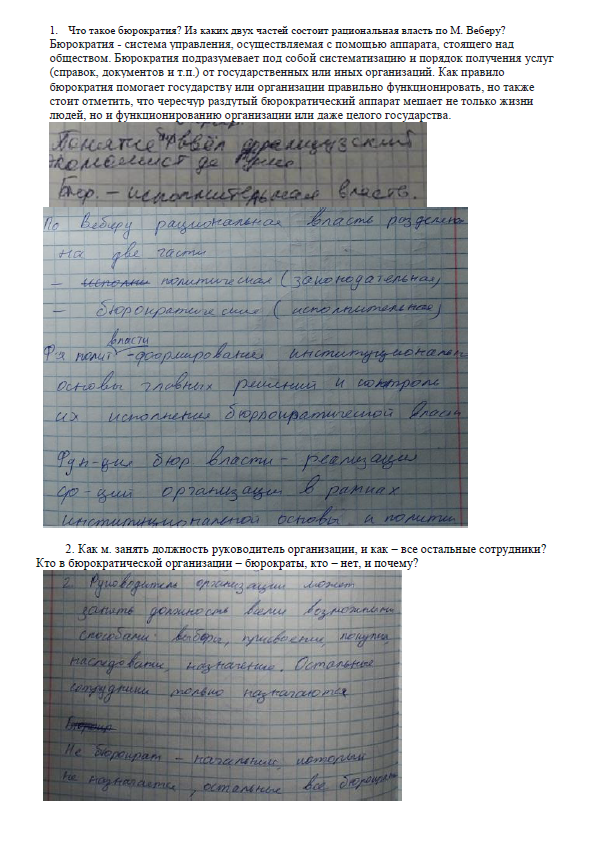 1. Что такое бюрократия? Из каких двух частей состоит рациональная власть по М. Веберу?
Бюрократия - система управления, осуществляемая с помощью аппарата, стоящего над
обществом. Бюрократия подразумевает под собой систематизацию и порядок получения услуг
(справок, документов и т.п.) от государственных или иных организаций. Как правило
бюрократия помогает государству или организации правильно функционировать, но также
стоит отметить, что чересчур раздутый бюрократический аппарат мешает не только жизни
людей, но и функционированию организации или даже целого государства.
Понятие ввёл французский
экономист де Гурнэ.
Бюр. – исполнительная власть.
По Веберу рациональная власть разделена
на две части
– политическая (законодательная)
– бюрократическая (исполнительная)
власти
Ф-я полит - формирование институциональн
основы главных решений и контроль
их исполнения бюрократической власти
Фун-ция бюр власти – реализация
ф-ций организации в рамках
институциональной основы и политики
2. Как м. занять должность руководитель организации, и как – все остальные сотрудники?
Кто в бюрократической организации – бюрократы, кто – нет, и почему?
2. Руководитель организации может
занять должность всеми возможными
способами: выбора, присвоения, покупки,
наследования, назначение. Остальные
сотрудники только назначаются
Не бюрократ – начальник, который
не назначается, остальные все бюрократы